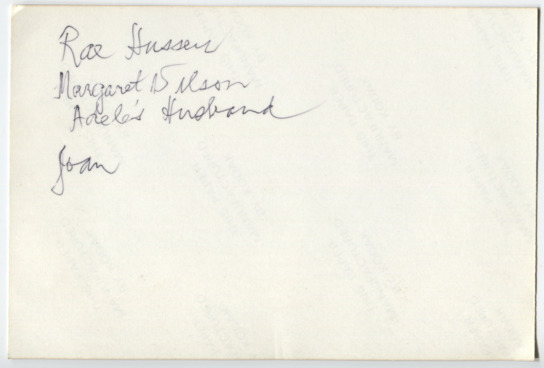 Rae Hussen
Margaret Wilson
Adele's Husband
Joan